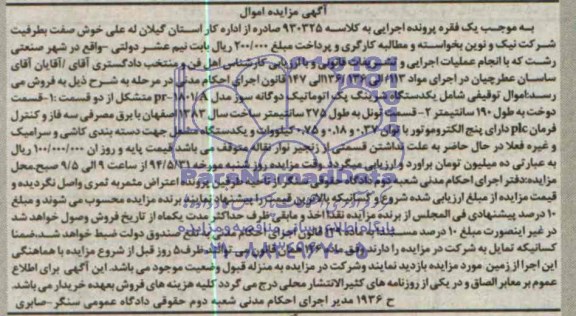 آگهی مزایده اموال
به موجب یک فقره پرونده اجرایی به کلاسه ۹۳۰۳۲۵ صادره از اداره کار استان گیلان له علی خوش صفت بطرفیت
شرکت نیک و نوین بخواسته و مطالبه کارگری و پرداخت مبلغ ۲۰۰/۰۰۰ ریال بابت نیم عشر دولتی -واقع در شهر صنعتی
رشت که با انجام عملیات اجرایی و تشریفات قانونی و با ارزیابی کارشناس اهل فن و منتخب دادگستری آقای /آقایان آقای
ساسان عطرچیان در اجرای مواد ۱۱۳الی ۱۳۶ /۱۳۶الی ۱۴۷ قانون اجرای احکام مدنی در مرحله به شرح ذیل به فروش می
رسد:اموال توقیفی شامل یکدستگاه شرینگ پک اتوماتیک دوگانه سوز مدل pr-۱۸۰۱/A متشکل از دو قسمت :۱-قسمت
دوخت به طول ۱۹۰ سانتیمتر ۲- قسمت تونل به طول ۲۷۵ سانتیمتر ساخت سال ۱۳۸۳ اصفهان با برق مصرفی سه فاز و کنترل
فرمان plc دارای پنج الکتروموتور با توان ۰.۳۷ و ۰.۱۸ و ۰.۷۵ کیلووات و یکدستگاه جهت دسته بندی کاشی و سرامیک
و غیره فعلا در حال حاضر به علت نداشتن قسمتی از زنجیر نوار نقاله متوقف می باشد قیمت پایه و روز ان ۱۰۰/۰۰۰/۰۰۰ ریال
به عبارتی ده میلیون تومان براورد و ارزیابی میگردد وقت مزایده روز شنبه مورخه ۹۴/۵/۳۱ از ساعت ۹ الی ۹/۵ صبح.محل
مزایده:دفتر اجرای احکام مدنی شعبه دوم دادگاه حقوقی سنگر از ناحیه طرفین پرونده اعتراض مثمربه ثمری واصل نگردیده و
قیمت مزایده از مبلغ ارزیابی شده شروع و کسانیکه بالاترین قیمت را پیشنهاد نمایند برنده مزایده محسوب می شوند و مبلغ
۱۰ درصد پیشنهادی فی المجلس از برنده مزایده نقدا اخذ و مابقی ظرف حداکثر مدت یکماه از تاریخ فروش وصول خواهد شد
در غیر اینصورت مبلغ ۱۰ درصد قانون اجرای احکام صندوق دولت ضبط خواهد شد.ضمنا
کسانیکه تمایل به شرکت در مزایده را دارند ظرف۵ روز قبل از شروع مزایده با هماهنگی
این اجرا از زمین مورد مزایده بازدید نمایند وشرکت در مزایده به منزله قبول وضعیت موجود می باشد. این آگهی برای اطلاع
عموم بر معابر الصاق و در یکی از روزنامه های کثیرالانتشار محلی درج می گردد کلیه هزینه های فروش بعهده خریدار می باشد.
ح ۱۹۳۶ مدیر اجرای احکام مدنی شعبه دوم حقوقی دادگاه عمومی سنگر-صابری